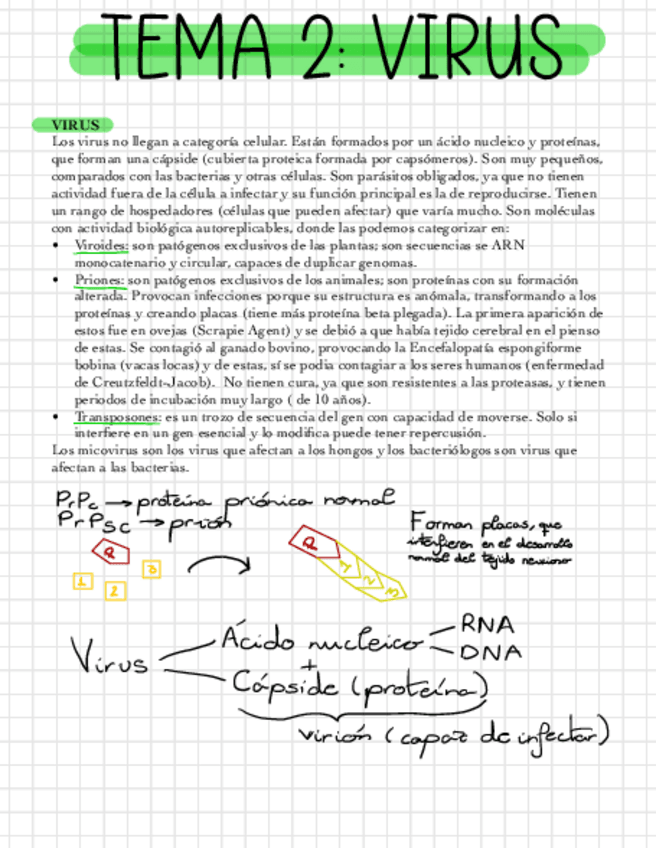 TEMA 2: VIRUS
VIRUS
Los virus no llegan a categoría celular. Están formados por un ácido nucleico y proteínas,
que forman una cápside (cubierta proteica formada por capsómeros). Son muy pequeños,
comparados con las bacterias y otras células. Son parásitos obligados, ya que no tienen
actividad fuera de la célula a infectar y su función principal es la de reproducirse. Tienen
un rango de hospedadores (células que pueden afectar) que varía mucho. Son moléculas
con actividad biológica autoreplicables, donde las podemos categorizar en:
• Viroides: son patógenos exclusivos de las plantas; son secuencias se ARN
monocatenario y circular, capaces de duplicar genomas.
• Priones: son patógenos exclusivos de los animales; son proteínas con su formación
alterada. Provocan infecciones porque su estructura es anómala, transformando a los
proteínas y creando placas (tiene más proteína beta plegada). La primera aparición de
estos fue en ovejas (Scrapie Agent) y se debió a que había tejido cerebral en el pienso
de estas. Se contagió al ganado bovino, provocando la Encefalopatía espongiforme
bobina (vacas locas) y de estas, sí se podía contagiar a los seres humanos (enfermedad
de Creutzfeldt-Jacob). No tienen cura, ya que son resistentes a las proteasas, y tienen
periodos de incubación muy largo ( de 10 años).
• Transposones: es un trozo de secuencia del gen con capacidad de moverse. Solo si
interfiere en un gen esencial y lo modifica puede tener repercusión.
Los micovirus son los virus que afectan a los hongos y los bacteriólogos son virus que
afectan a las bacterias.
PrPc → proteína priónica normal
PrPsc → prión
Forman placas, que
interfieren en el desarrollo
normal del tejido nervioso
R
1
2
3
R
1
2
3
Virus
Ácido nucleico
RNA
DNA
+
Cápside (proteína)
virión (capaz de infectar)